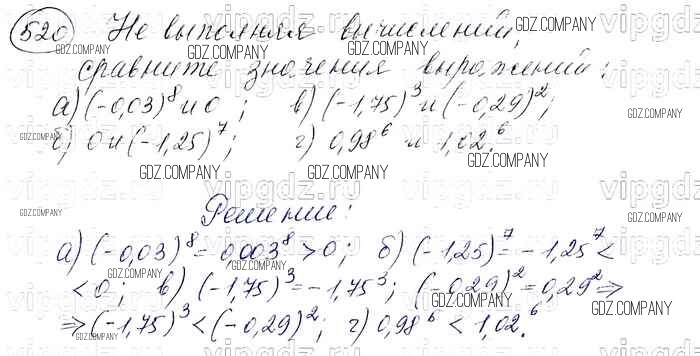 520 Не выполняя вычислений,
сравните значения выражений:
а) (-0,03)^8 и 0; в) (-1,75)^3 и (-0,29)^2;
б) 0 и (-1,25)^7; г) 0,98^6 и 1,02^6.
Решение:
а) (-0,03)^8 = 0,003^8 > 0; б) (-1,25)^7 = -1,25^7 <
< 0; в) (-1,75)^3 = -1,75^3; (-0,29)^2 = 0,29^2 ⇒
⇒ (-1,75)^3 < (-0,29)^2; г) 0,98^6 < 1,02^6.
GDZ.COMPANY
vipgdz.ru